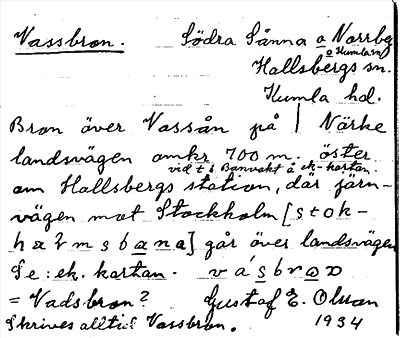 Vassbron. Södra Sånna o Norrby
o Kumla sn
Hallsbergs sn.
Kumla hd.
Bron över Vassån på | Närke
landsvägen omkr 700 m. öster
vid t i Banvakt å ek-kartan
om Hallsbergs station, där järn-
vägen mot Stockholm [stok-
går över landsvägen
Se: ek. kartan.
= Vadsbron? Gustaf E. Olsson
Skrives alltid Vassbron. 1934